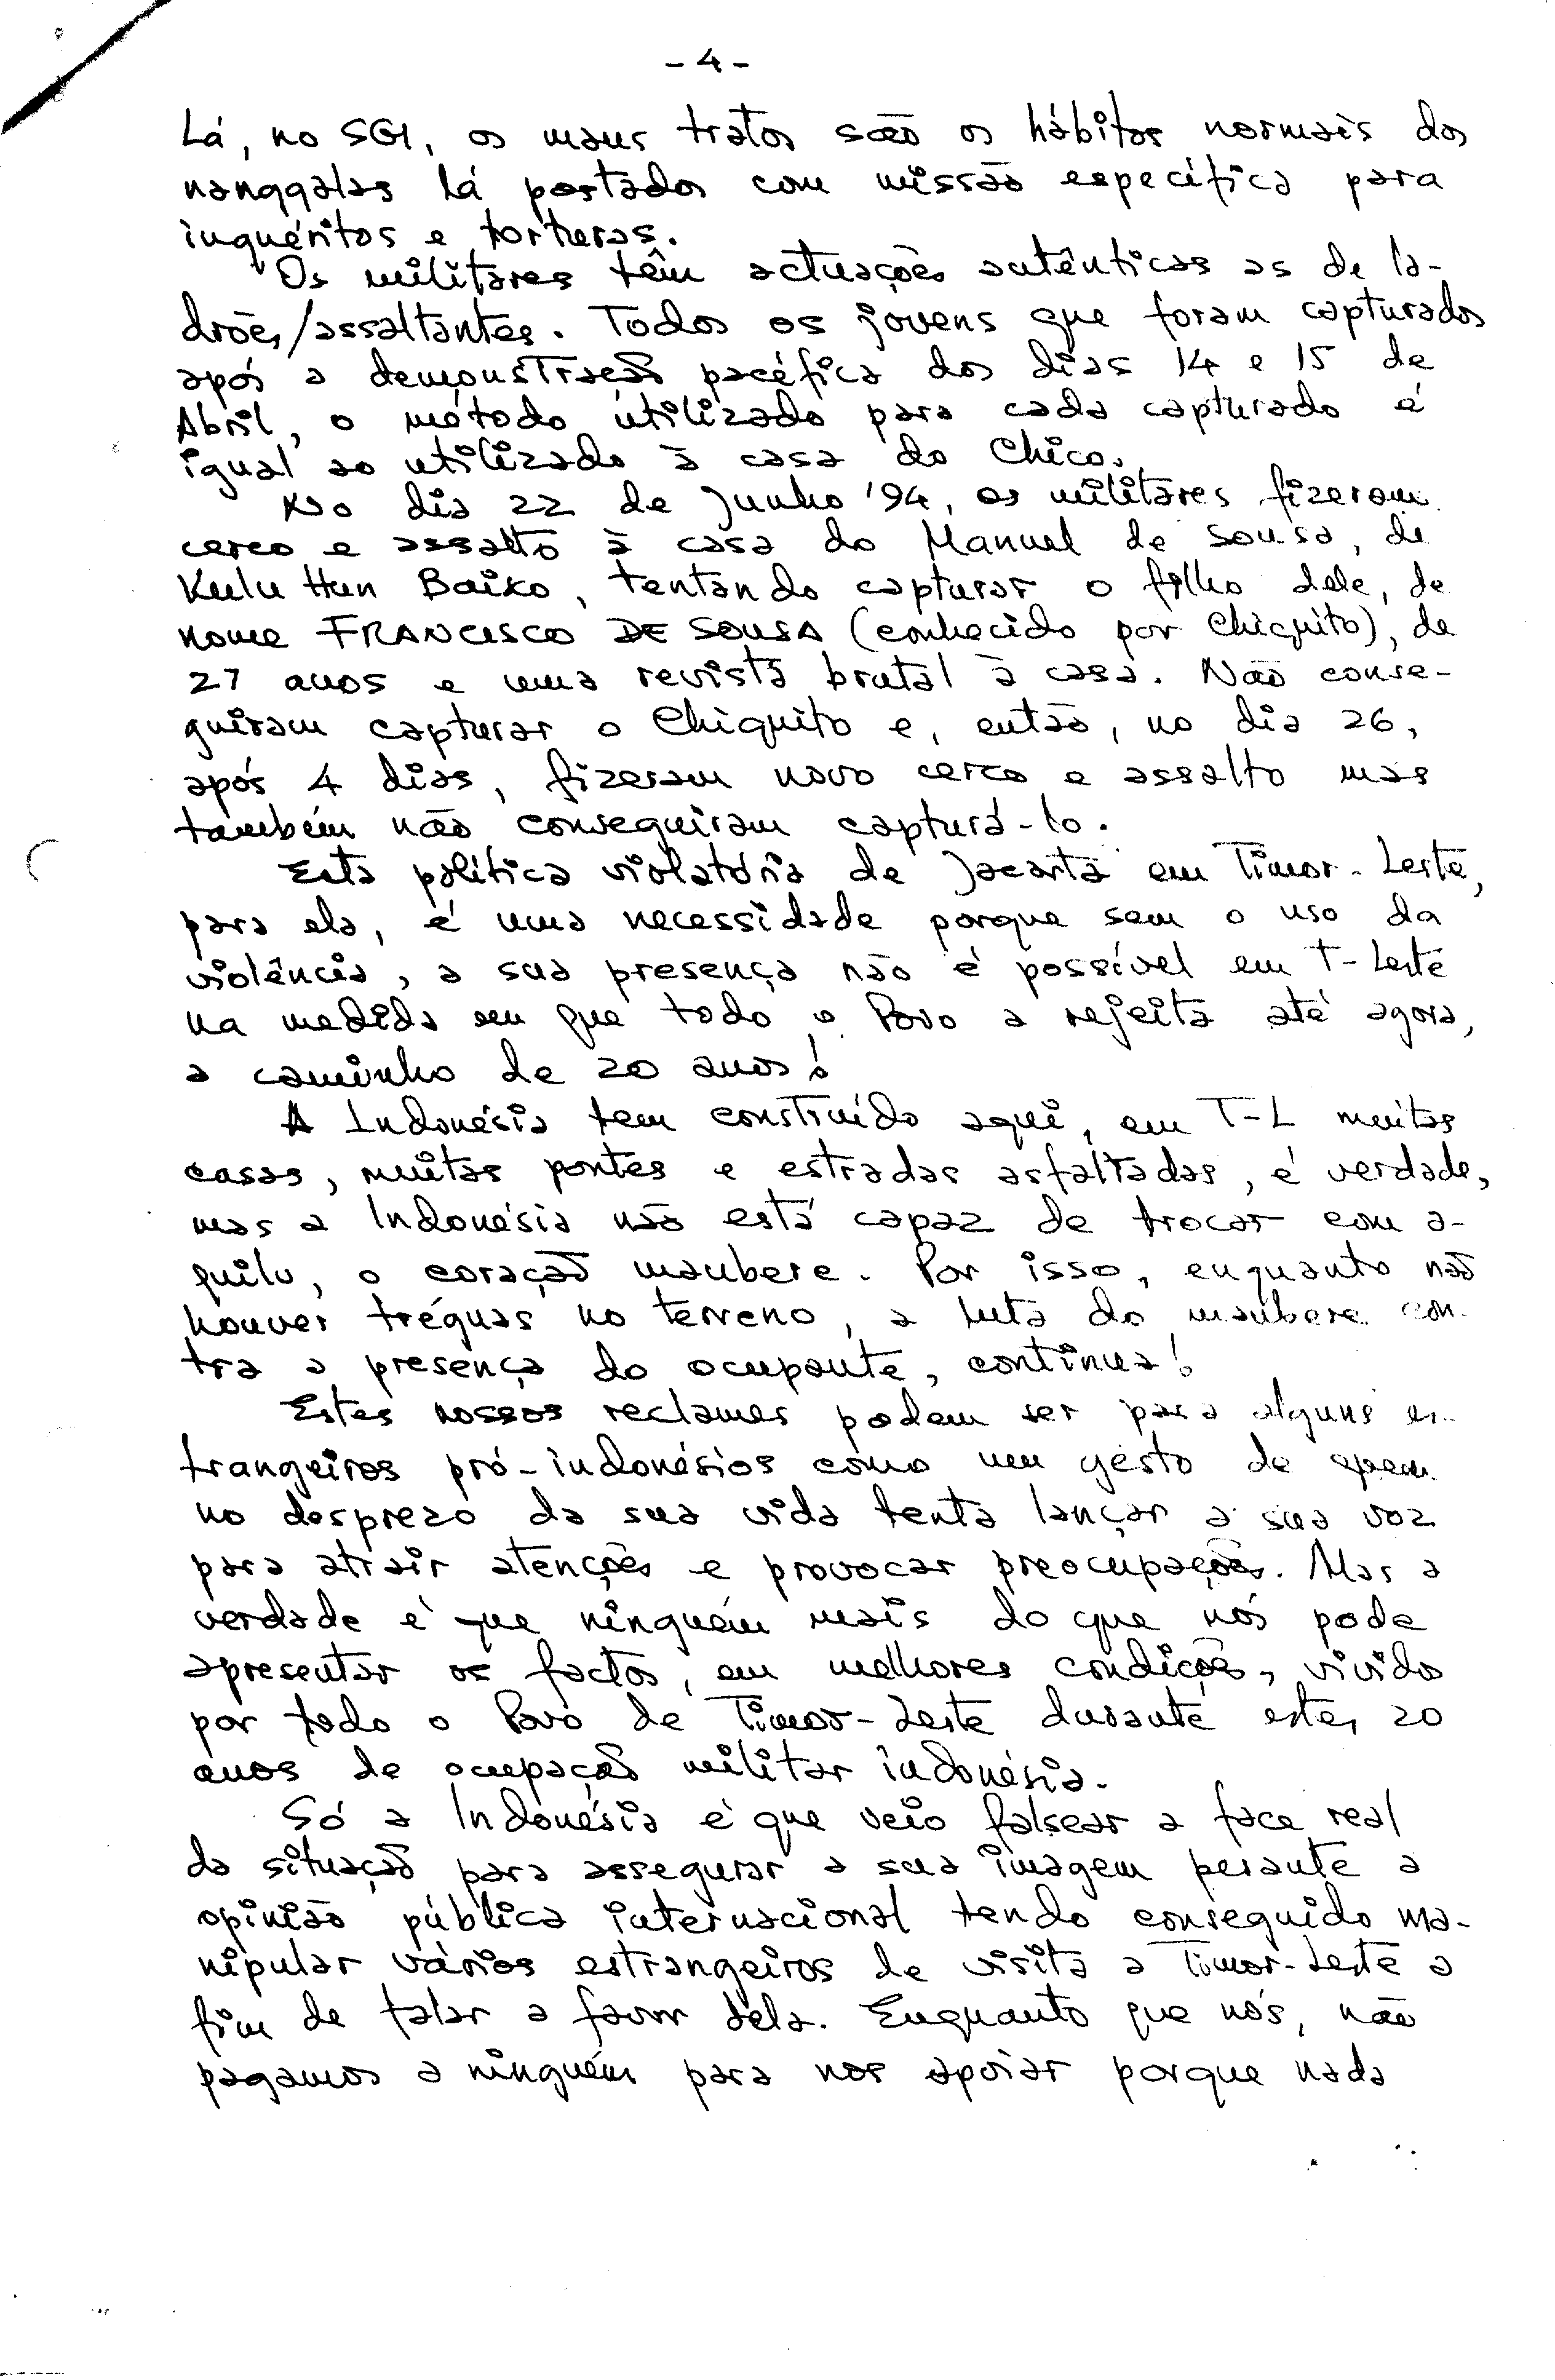 - 4 -
Lá, no SGI, os maus tratos são os hábitos normais dos
nanggalas lá postados com missão específica para
inquéritos e torturas.
Os militares têm actuações autênticas as de la-
drões/assaltantes. Todos os jovens que foram capturados
após a demonstração pacífica dos dias 14 e 15 de
Abril, o método utilizado para cada capturado é
igual ao utilizado à casa do Chico.
No dia 22 de Junho '94, os militares fizeram
cerco e assalto à casa do Manuel de Sousa, de
Kulu Hun Baixo, tentando capturar o filho dele, de
nome FRANCISCO DE SOUSA (conhecido por Chiquito), de
27 anos e uma revista brutal à casa. Não conse-
guiram capturar o Chiquito e, então, no dia 26,
após 4 dias, fizeram novo cerco e assalto mas
também não conseguiram capturá-lo.
Esta política violatória de Jacarta em Timor-Leste,
para ela, é uma necessidade porque sem o uso da
violência, a sua presença não é possível em T-Leste
na medida em que todo o Povo a rejeita até agora,
a caminho de 20 anos!
A Indonésia tem construído aqui, em T-L muitas
casas, muitas pontes e estradas asfaltadas, é verdade,
mas a Indonésia não está capaz de trocar com a-
quilo, o coração maubere. Por isso, enquanto não
houver tréguas no terreno, a luta do maubere con-
tra a presença do ocupante, continua!
Estes nossos reclames podem ser para alguns es-
trangeiros pró-indonésios como um gesto de quem
no desprezo da sua vida tenta lançar a sua voz
para atrair atenções e provocar preocupações. Mas a
verdade é que ninguém mais do que nós pode
apresentar os factos, em melhores condições, vivido
por todo o Povo de Timor-Leste durante estes 20
anos de ocupação militar indonésia.
Só a Indonésia é que veio falsear a face real
da situação para assegurar a sua imagem perante a
opinião pública internacional tendo conseguido ma-
nipular vários estrangeiros de visita a Timor-Leste a
fim de falar a favor dela. Enquanto que nós, não
pagamos a ninguém para nos apoiar porque nada